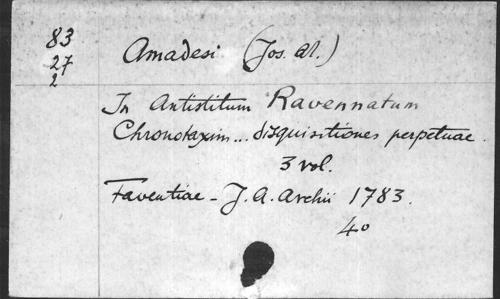 83
27
2
Amadesi (Jos. Al.)
In Antistitum Ravennatum
Chronotaxim... disquisitiones perpetuae.
3 vol.
Faventiae - J. A. Archii 1783.
4o